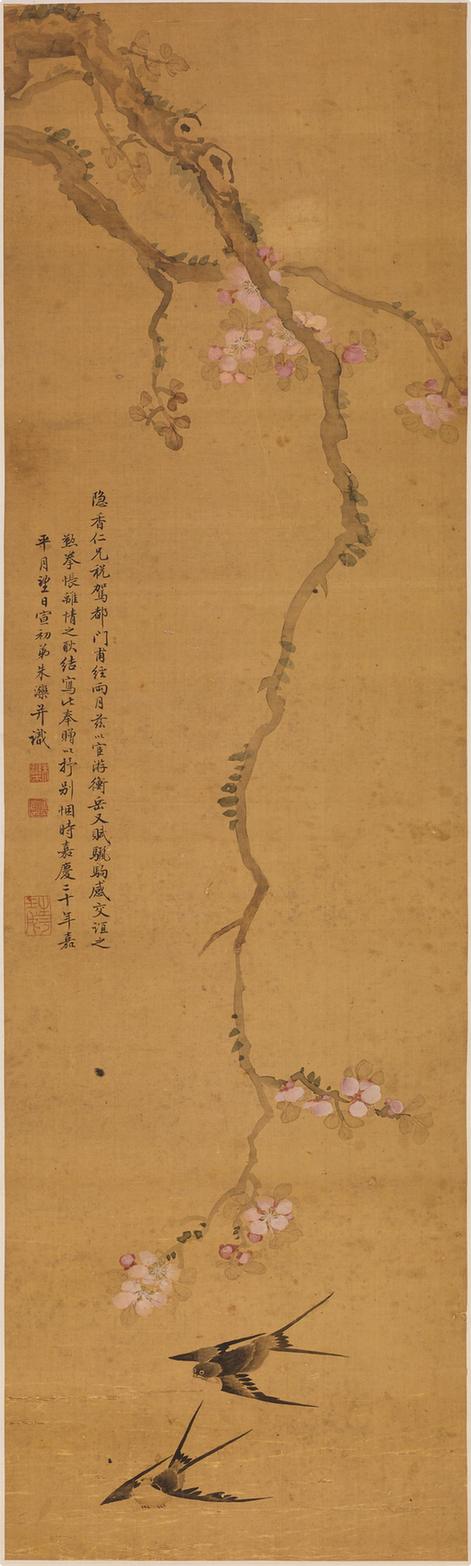 隐香仁兄税驾都门甫经两月兹以宦游衡岳又赋骊驹感交谊之
懃拳悵離情之耿结寫此奉贈以抒别悃時嘉慶二十年嘉
平月望日宣初弟朱瀠并識